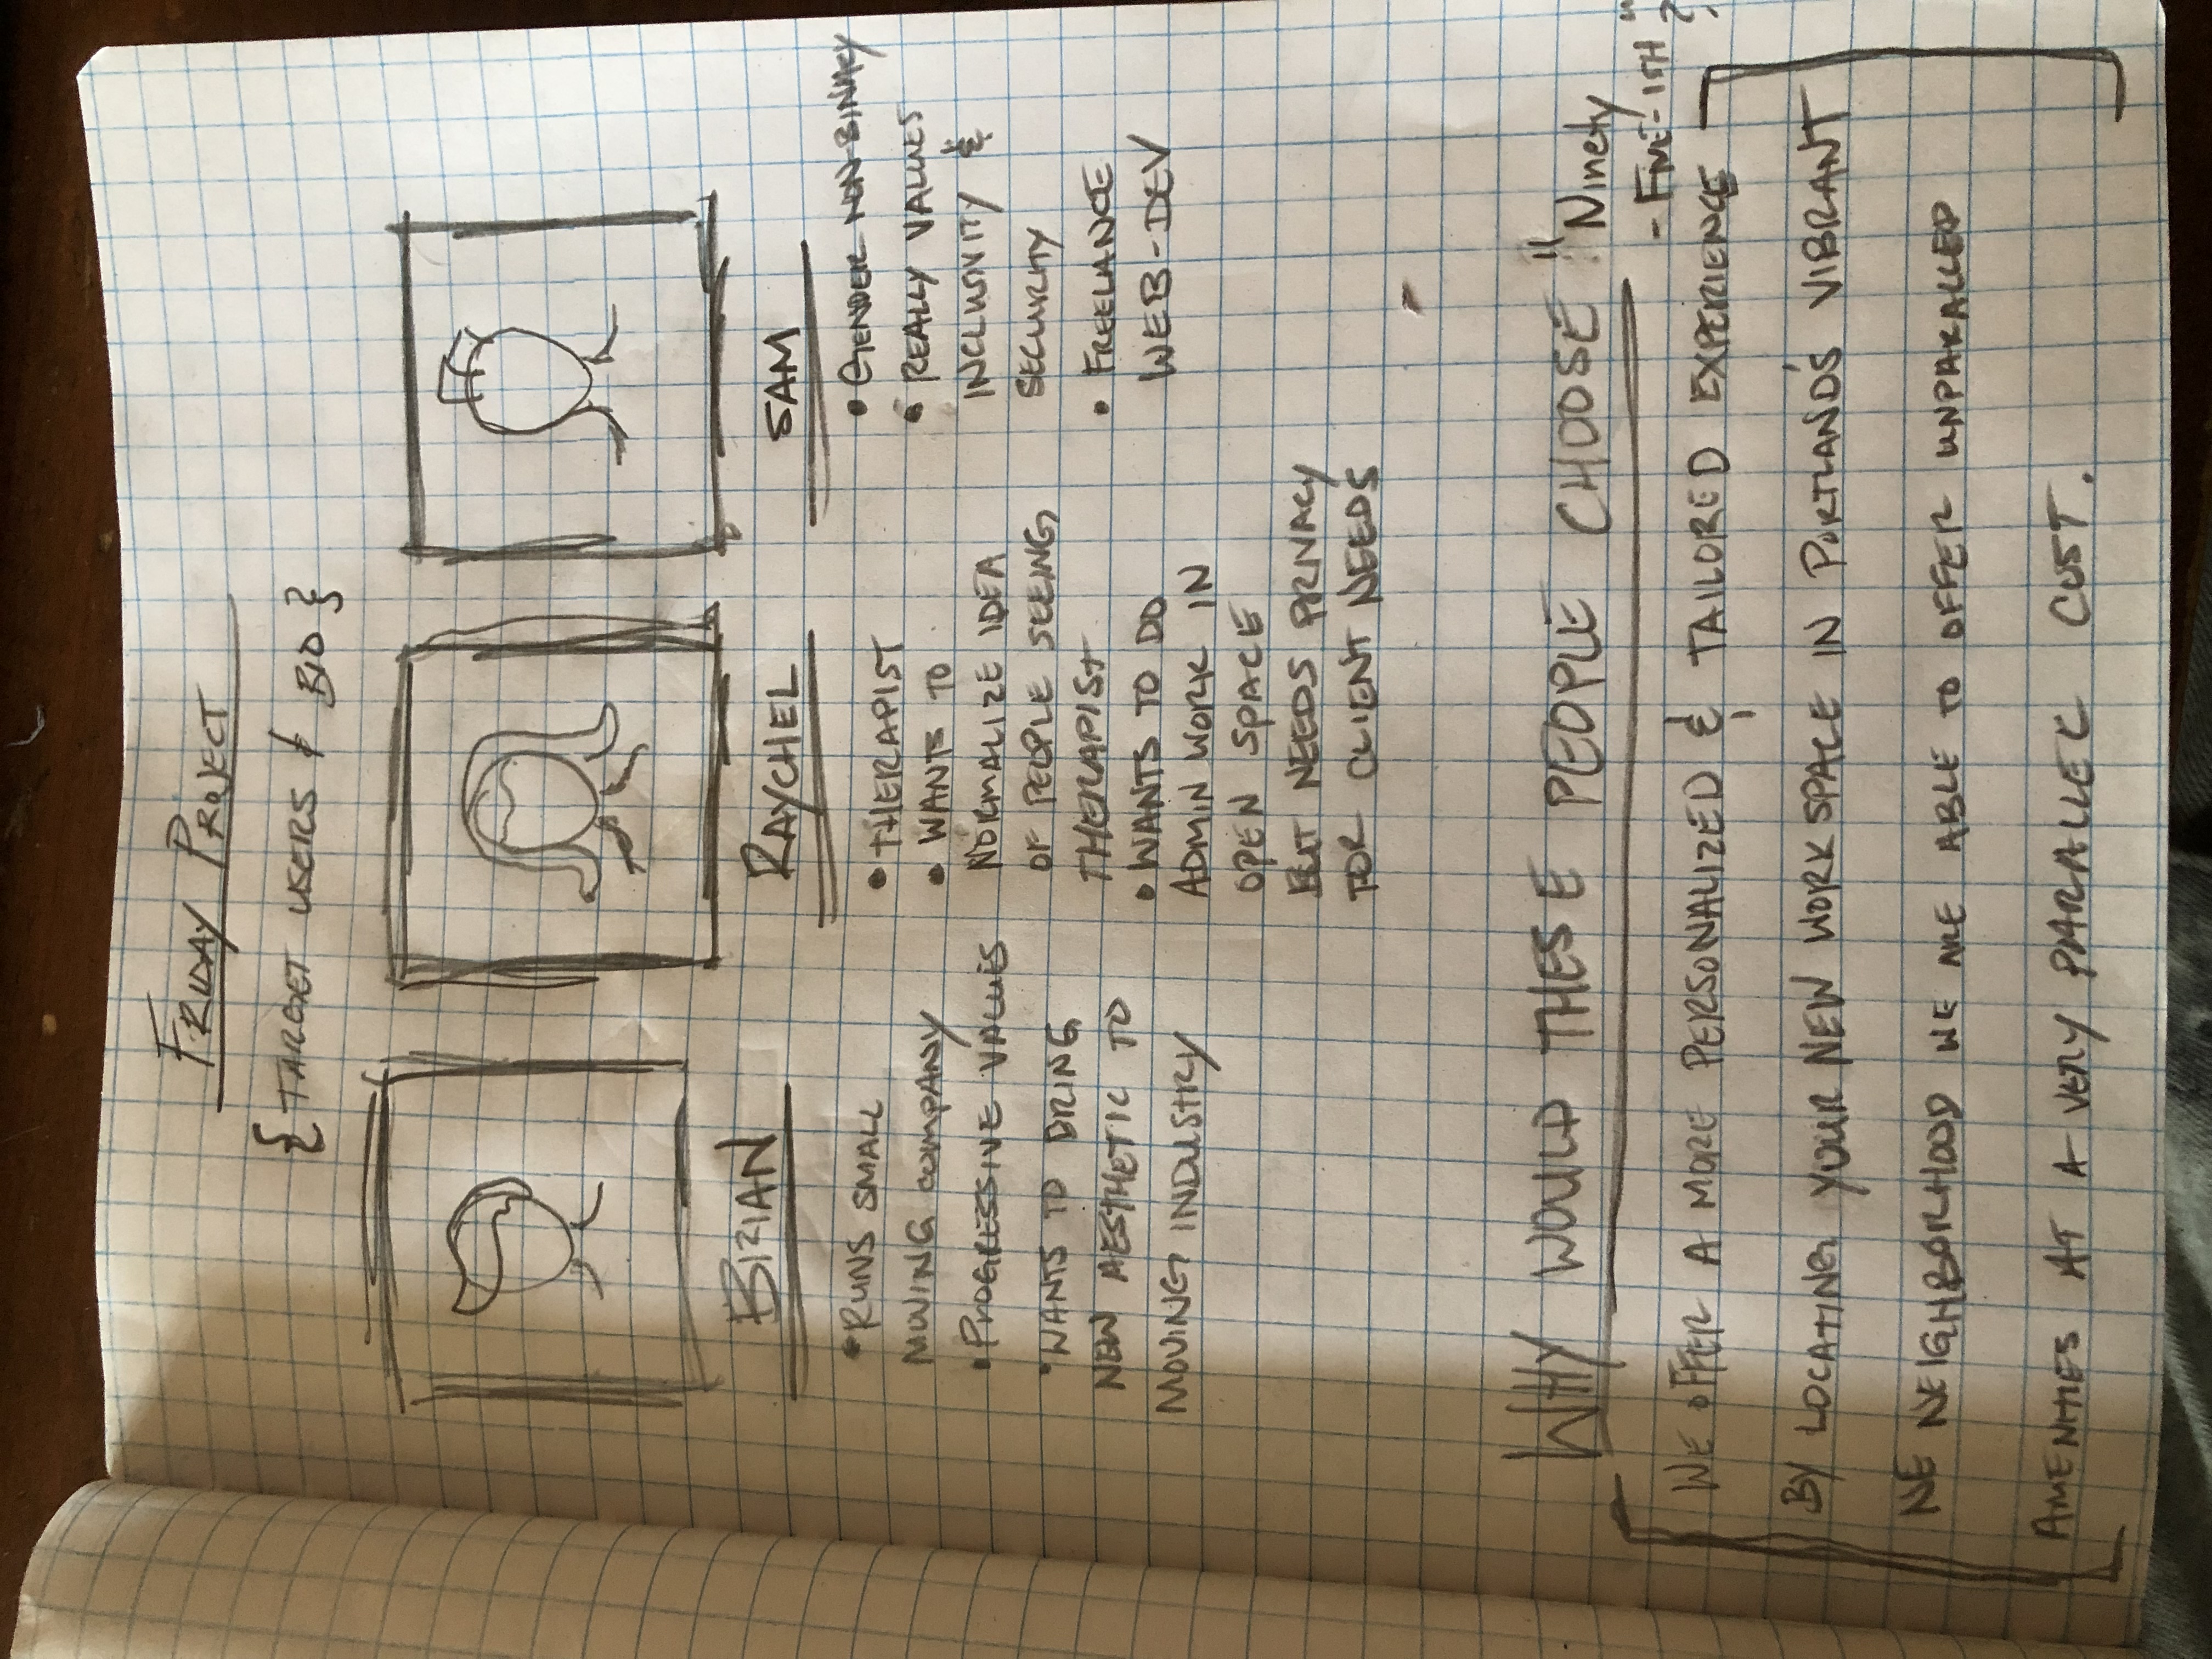 FRIDAY PROJECT
{ TARGET USERS & BIO }
BRIAN
• RUNS SMALL
MOVING COMPANY
• PROGRESSIVE VALUES
• WANTS TO BRING
NEW AESTHETIC TO
MOVING INDUSTRY
RAYCHEL
• THERAPIST
• WANTS TO
NORMALIZE IDEA
OF PEOPLE SEEING
THERAPIST
• WANTS TO DO
ADMIN WORK IN
OPEN SPACE
BUT NEEDS PRIVACY
FOR CLIENT NEEDS
SAM
• GENDER NON-BINARY
• REALLY VALUES
INCLUSIVITY &
SECURITY
• FREELANCE
WEB-DEV
WHY WOULD THESE PEOPLE CHOOSE "Ninety
- FIVE - 15H"?
WE OFFER A MORE PERSONALIZED & TAILORED EXPERIENCE
BY LOCATING YOUR NEW WORKSPACE IN PORTLAND'S VIBRANT
NE NEIGHBORHOOD WE ARE ABLE TO OFFER UNPARALLED
AMENITIES AT A VERY PARALLEL COST.